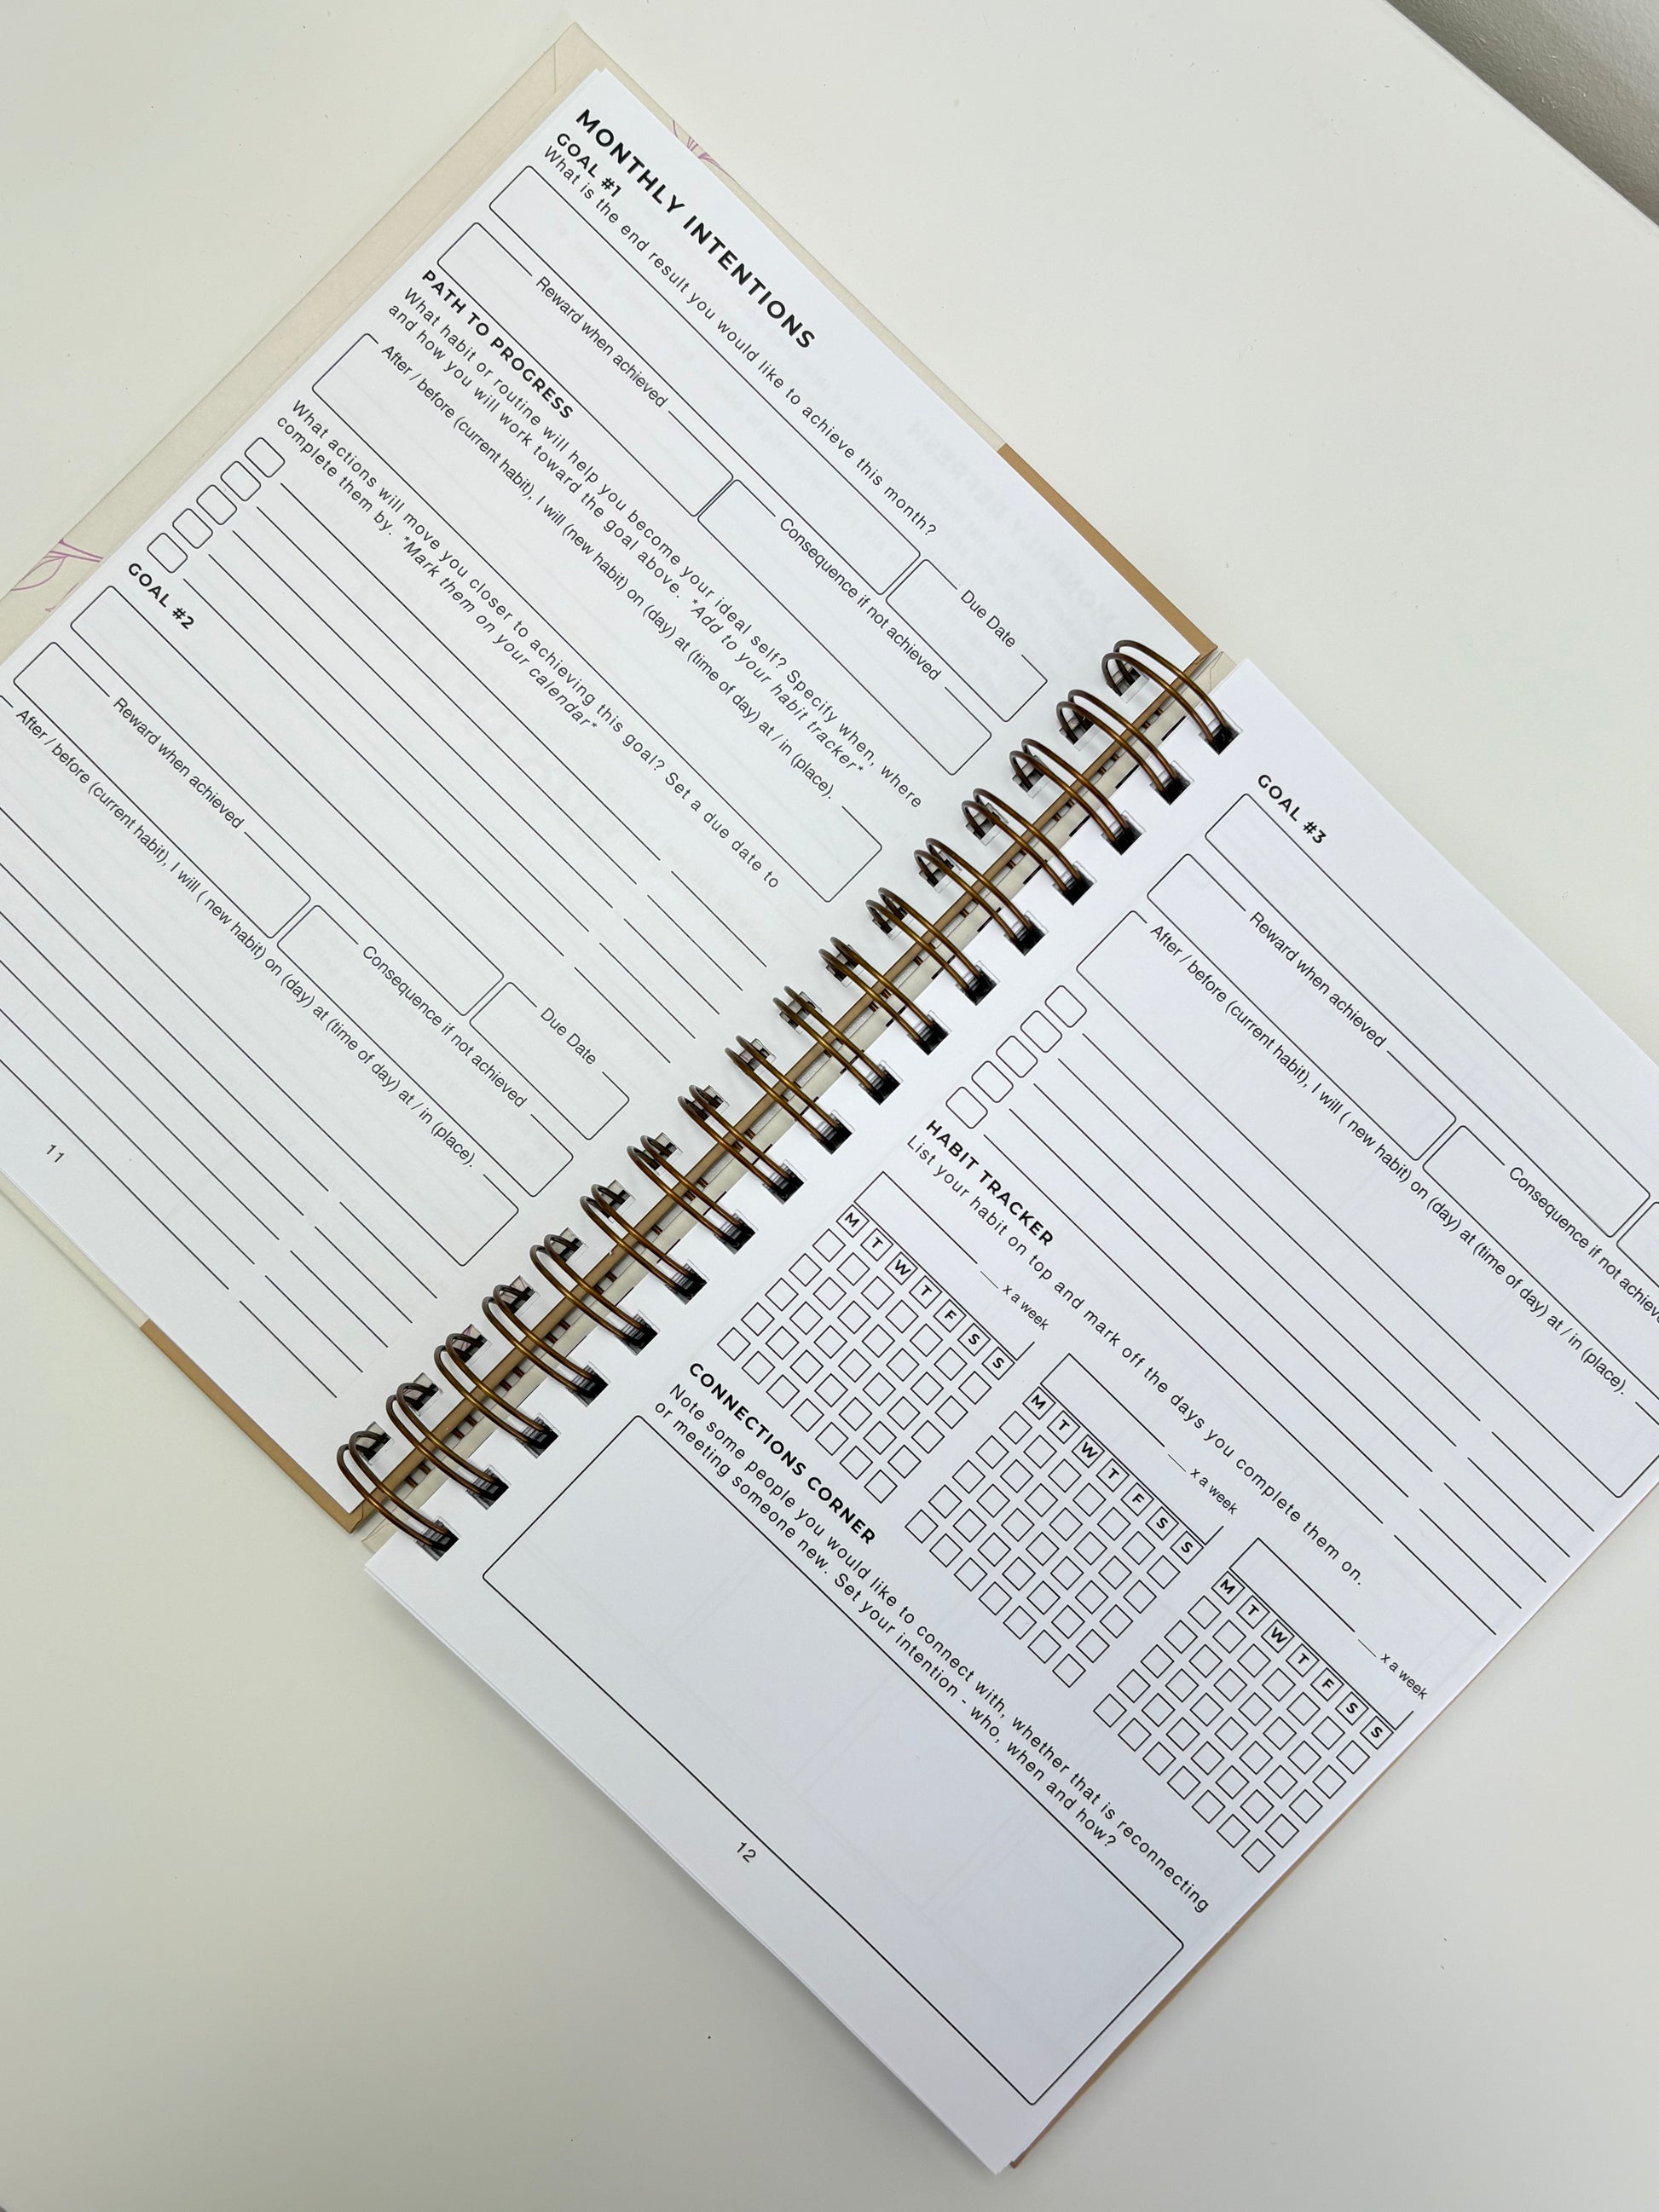 MONTHLY INTENTIONS
GOAL #1
What is the end result you would like to achieve this month?
Due Date
Reward when achieved
Consequence if not achieved
PATH TO PROGRESS
What habit or routine will help you become your ideal self? Specify when, where
and how you will work toward the goal above. *Add to your habit tracker*
After / before (current habit), I will (new habit) on (day) at (time of day) at / in (place).
What actions will move you closer to achieving this goal? Set a due date to
complete them by. *Mark them on your calendar*
GOAL #2
Due Date
Reward when achieved
Consequence if not achieved
After / before (current habit), I will ( new habit) on (day) at (time of day) at / in (place).
11
GOAL #3
Reward when achieved
Consequence if not
After / before (current habit), I will ( new habit) on (day) at (time of day) at / in (place).
HABIT TRACKER
List your habit on top and mark off the days you complete them on.
x a week
M T W T F S S
x a week
M T W T F S S
x a week
M T W T F S S
CONNECTIONS CORNER
Note some people you would like to connect with, whether that is reconnecting
or meeting someone new. Set your intention - who, when and how?
12